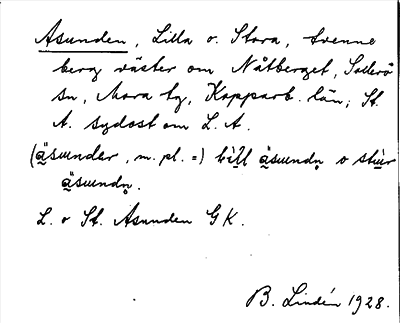 Åsunden, Lilla o. Stora, tvenne
berg väster om Nåtberget, Sollerö
sn, Mora tg, Kopparb. län; St.
A. sydost om L. A.
(åsunder, m. pl. =) lill åsundn o stur
åsundn.
L. o St. Åsunden GK.
B. Lindén 1928.